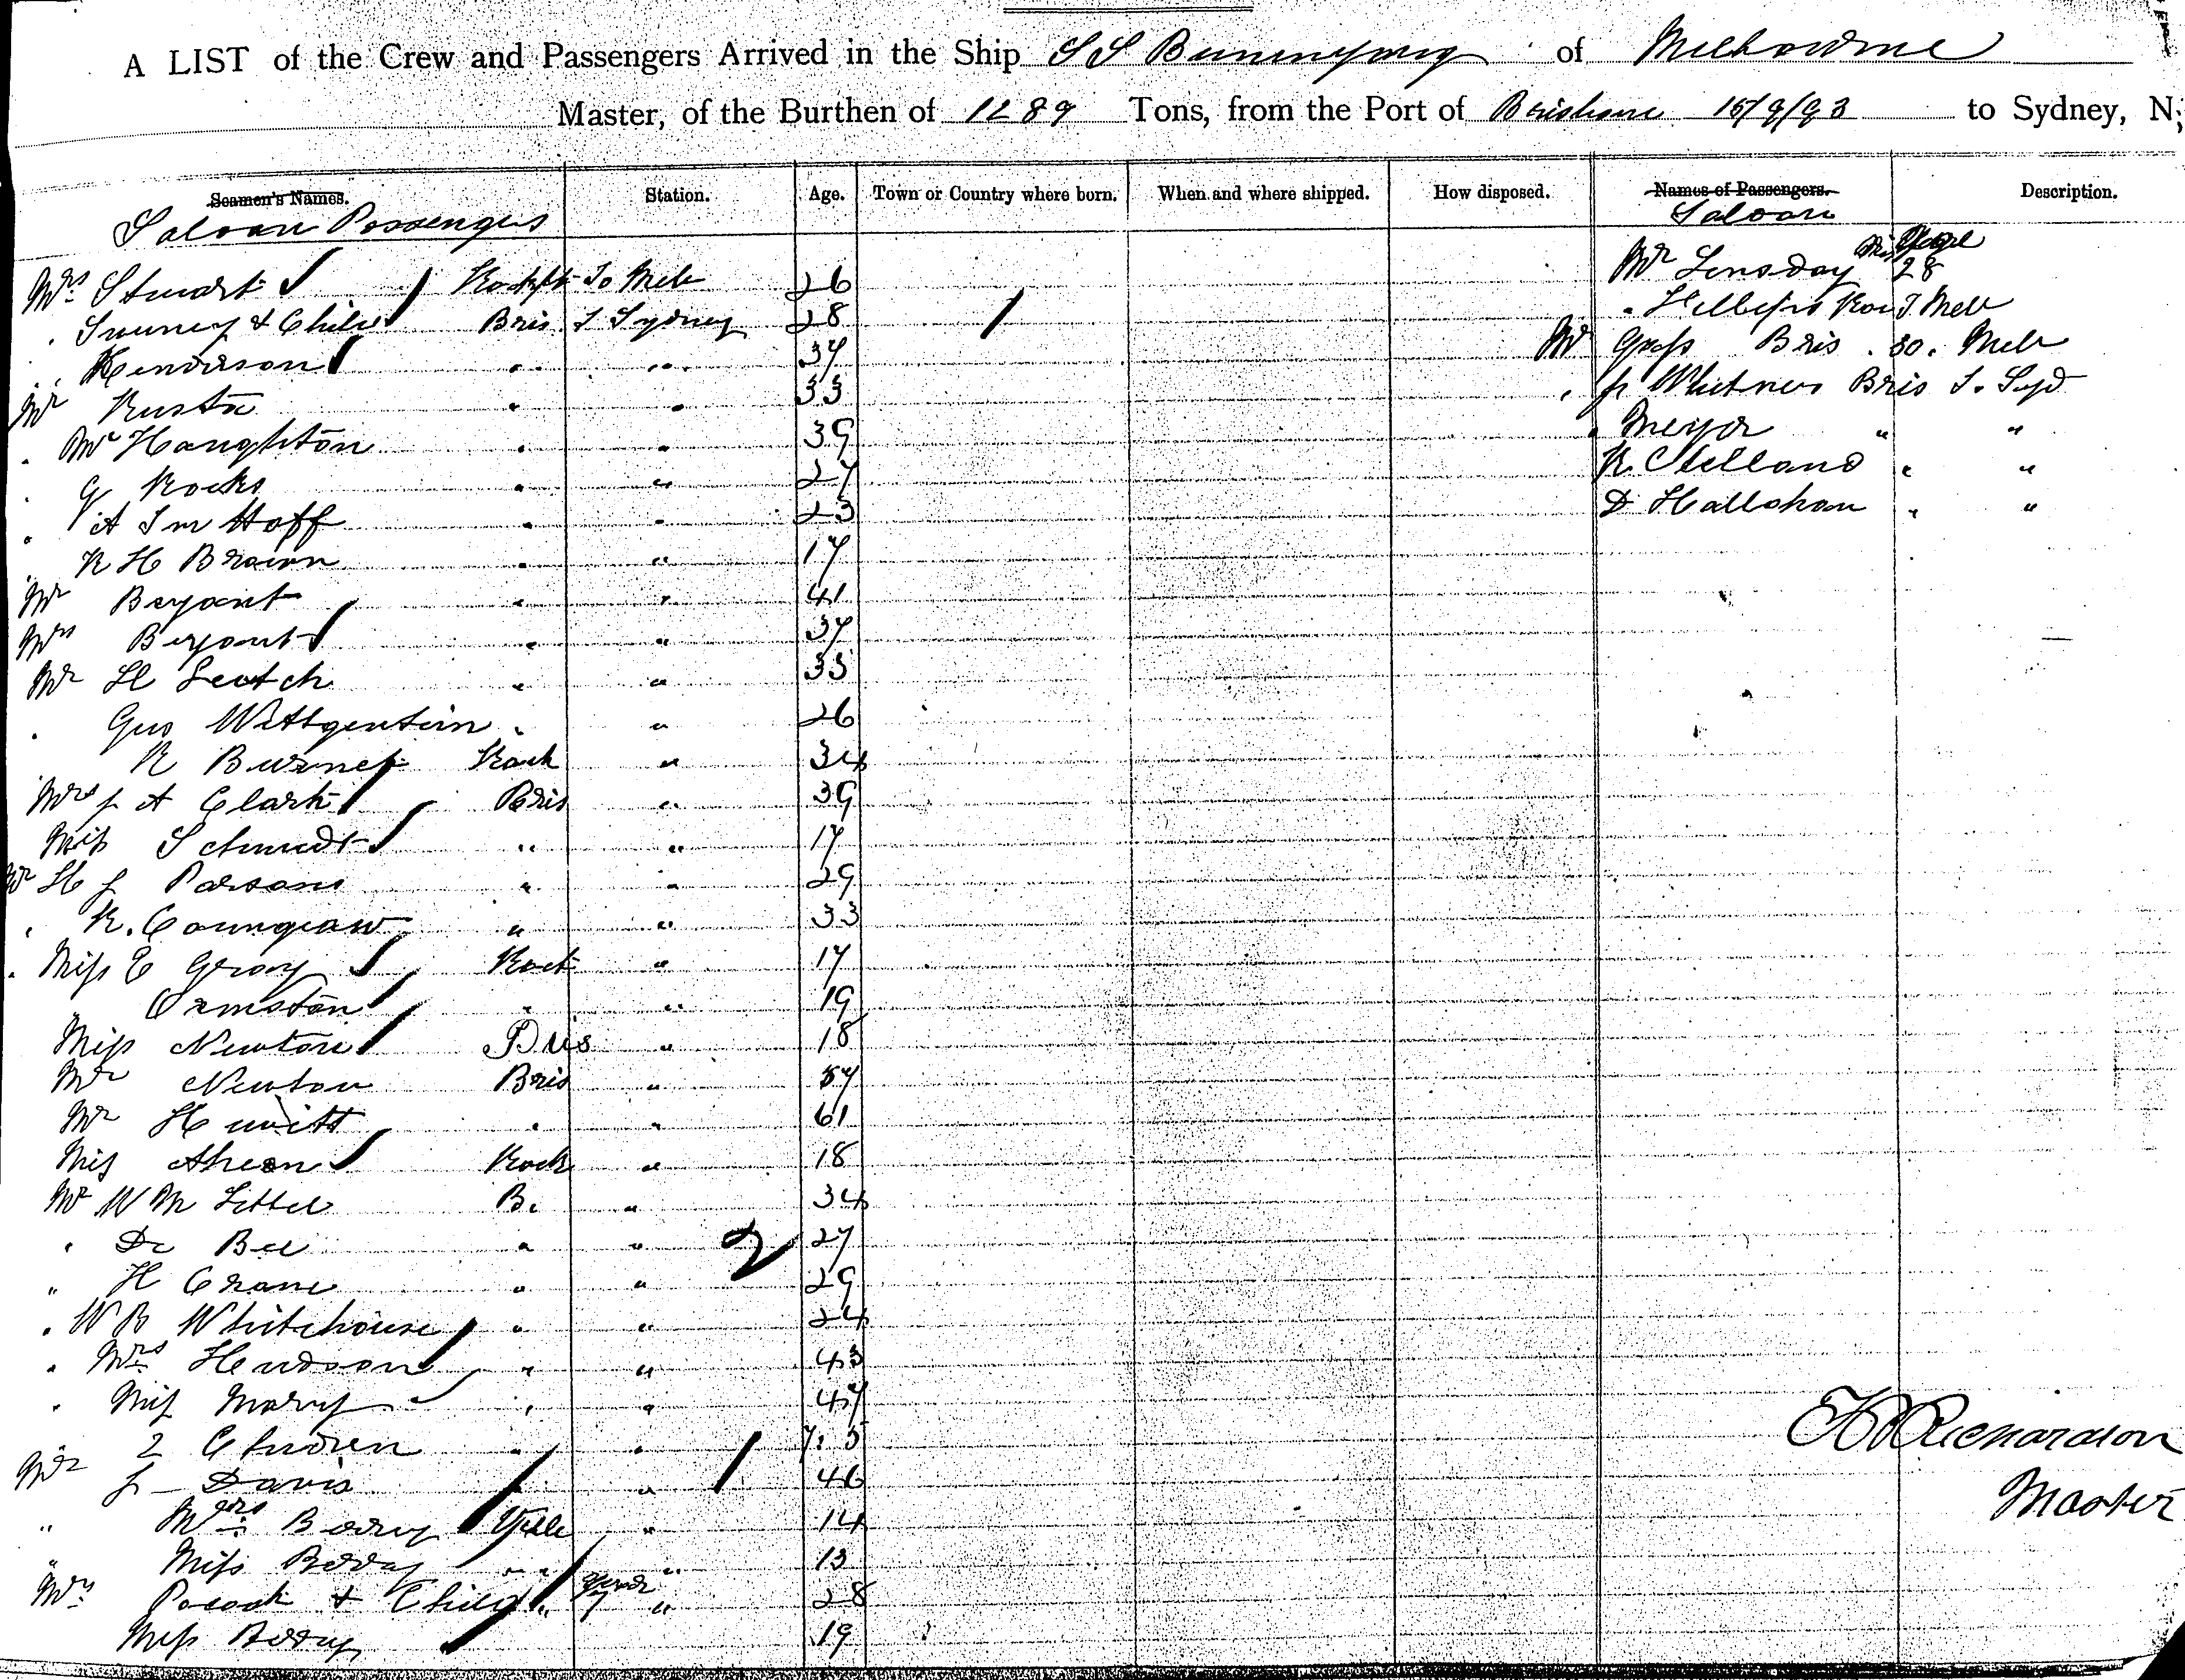 A LIST of the Crew and Passengers Arrived in the Ship S S Buninyong of Melbourne
Master, of the Burthen of 1289 Tons, from the Port of Brisbane 15/9/93 to Sydney, N
Seamen's Names. Station. Age. Town or Country where born. When and where shipped. How disposed. Names of Passengers. Description.
Saloon Passengers
Saloon
Mrs Stuart Rockptn To Melb 26
" & Child Bris T Sydney 28
" Henderson " " 37
Mr Rusta " " 33
" Mr Haughton " " 39
" G Rocks " " 27
" A Im Hoff " " 23
" R H Brown " " 17
Mr Bryant " " 41
Mrs Bryant " " 37
Mr H Leotch " " 33
" Gus Wittgenstein " " 26
R Burnes Rock " 34
Mrs J A Clark Bris " 39
Miss Schmidt " " 17
Mr H J Parsons " " 29
" R. " " 33
" Miss E Gray Rock " 17
Ormston " " 19
Miss Newton Bris " 18
Mr Newton Bris " 57
Mr Hewitt " " 61
Miss Ahern Rock " 18
Mr W M Littel B. " 34
" Dr Bell " " 27
" H Crane " " 29
" W B Whitehouse " " 24
" Mrs Hudson " " 43
" Miss Mary " " 47
2 Children " " 7. 5
Mr J Davis " " 46
" Mrs Berry " 14
" Miss Berry " " 13
Mrs Pocock & Child " " 28
Miss Berry 19
Mr Lonsday 28
" T. Melb
Mr Goss Bris . 30. Melb
" J Whitner Bris T. Syd
" Meyer " "
R Clelland " "
D Hallohan " "
H Richardson
Master